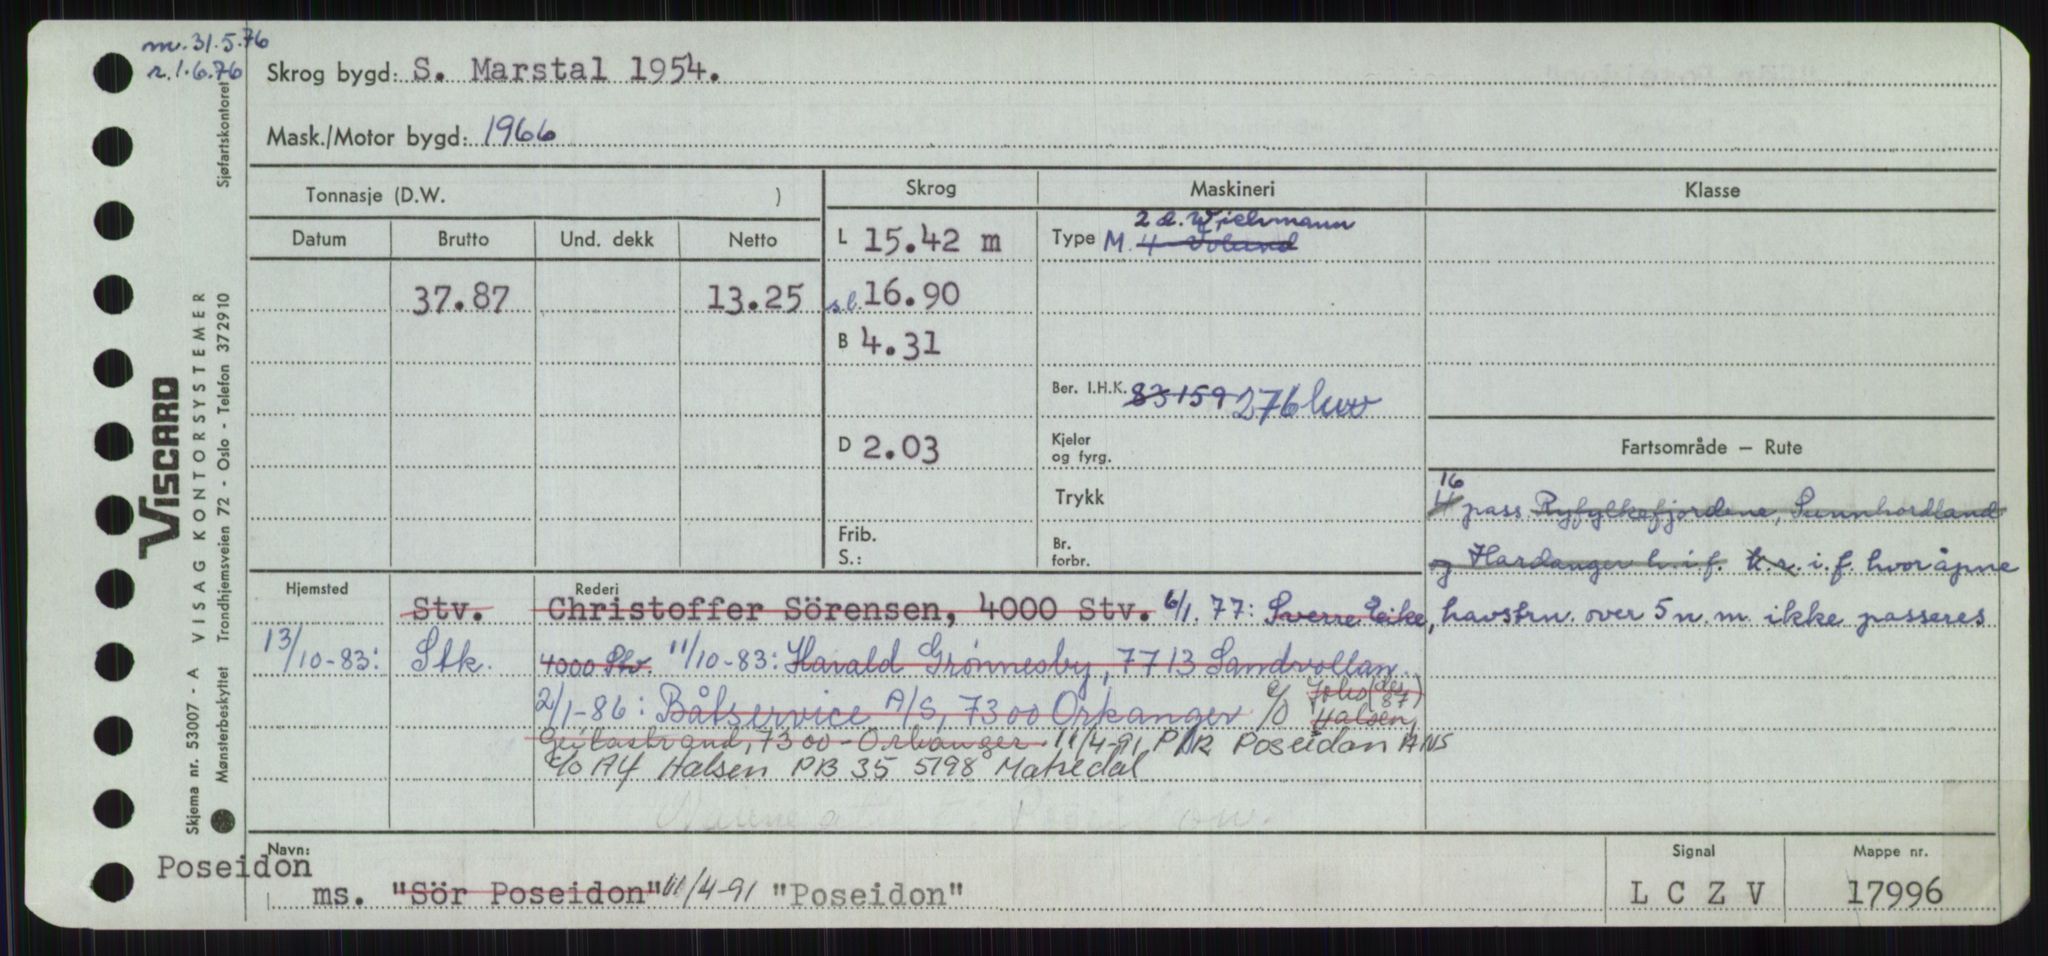 m. 31.5.76
r. 1.6.76
Skrog bygd: S. Marstal 1954.
Mask./Motor bygd: 1966
Tonnasje (D.W. )
Skrog
Maskineri
Klasse
Datum Brutto Und. dekk Netto
L 15.42 m
Type M. 4 Volund
2 d. Wichmann
37.87 13.25
s.l. 16.90
B 4.31
Ber. I.H.K. 83 159 276 kw
D 2.03
Kjeler og fyrg.
Trykk
Frib. S.:
Br. forbr.
Fartsområde — Rute
16
pass. Ryfylkefjordene, Sunnhordland
og Hardanger h.i.f. k.r. i.f. hvor åpne
havstrn. over 5 n.m. ikke passeres
Hjemsted
Rederi
Stv. Christoffer Sörensen, 4000 Stv. 6/1. 77: Sverre Eike,
13/10-83: Stk. 4000 Stv. 11/10-83: Harald Grønnesby, 7713 Sandvollan.
2/1-86: Båtservice A/S, 7300 Orkanger c/o Halsen, (des 87)
Geitastrand, 7300 - Orkanger. 11/4-91 P/R Poseidon ANS
c/o Alf Halsen PB 35 5198 Matredal
Navn:
Poseidon
ms. "Sör Poseidon" 11/4-91 "Poseidon"
Signal
L C Z V
Mappe nr.
17996
Sjøfartskontoret
VISCARD
Skjema nr. 53007 - A VISAG KONTORSYSTEMER
Mønsterbeskyttet Trondhjemsveien 72 - Oslo - Telefon 372910